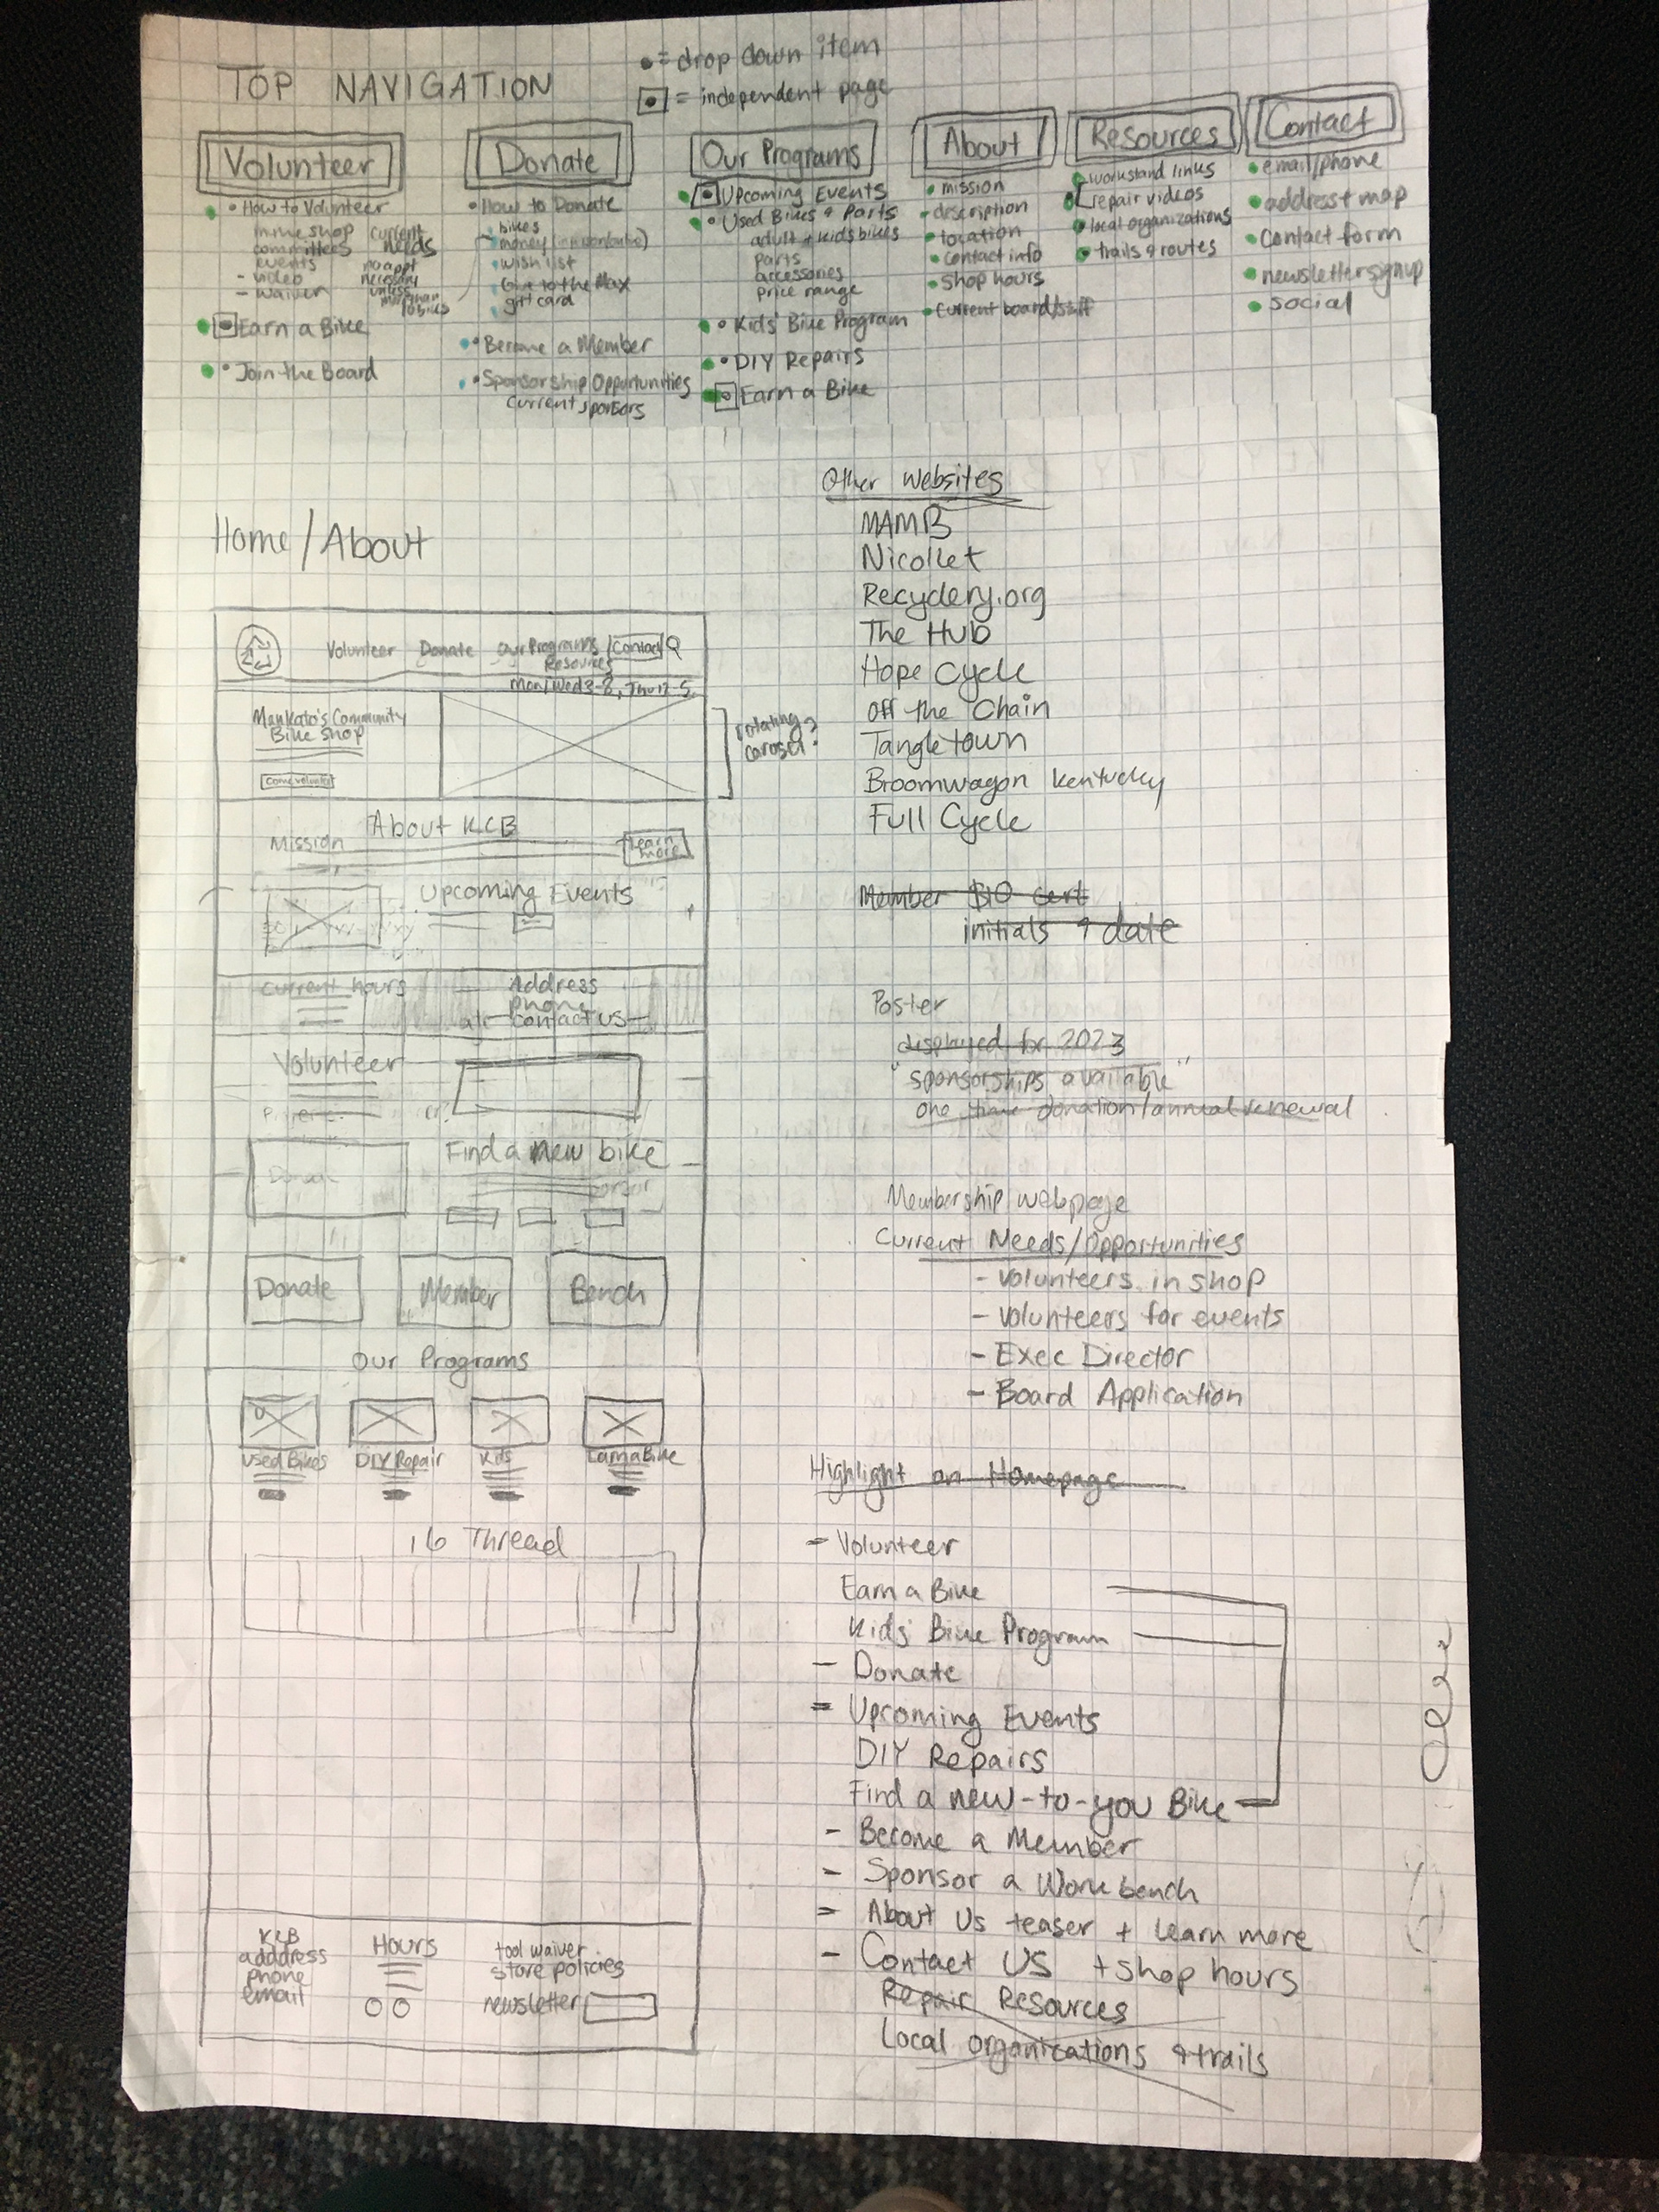 TOP NAVIGATION
• = drop down item
= independent page
Volunteer
• How to Volunteer
in the shop
committees
events
- video
- waiver
current
needs
no appt
necessary
unless
more than
Earn a Bike
• Join the Board
Donate
• How to Donate
bikes
money
wish list
Give to the Max
gift card
• Become a Member
• Sponsorship Opportunities
current sponsors
Our Programs
Upcoming Events
• Used Bikes & Parts
adult + kids bikes
parts
accessories
price range
• Kids' Bike Program
• DIY Repairs
Earn a Bike
About
• mission
• description
• location
• contact info
• shop hours
• current board/staff
Resources
workstand links
repair videos
local organizations
trails & routes
Contact
• email/phone
• address + map
• contact form
• newsletter signup
• social
Home/About
Volunteer Donate Our Programs Contact
Resources
Mon/Wed 3-8, Thu 12-5
Mankato's Community
Bike Shop
come volunteer
rotating
carosel?
About KCB
Mission
learn
more
Upcoming Events
Current hours
Address
phone
contact us
Volunteer
Find a new bike
Donate
Member
Bench
Our Programs
Used Bikes
DIY Repair
Kids
Earn a Bike
16 Thread
KCB
adddress
phone
email
Hours
tool waiver
store policies
newsletter
Other Websites
MAMB
Nicollet
Recyclery.org
The Hub
Hope Cycle
Off the Chain
Tangletown
Broomwagon Kentucky
Full Cycle
Member $10 cert
initials & date
Poster
displayed for 2023
"sponsorships available"
one time donation/annual renewal
Membership webpage
Current Needs/Opportunities
- volunteers in shop
- volunteers for events
- Exec Director
- Board Application
Highlight on Homepage
= Volunteer
Earn a Bike
Kids' Bike Program
- Donate
= Upcoming Events
DIY Repairs
Find a new-to-you Bike
- Become a Member
- Sponsor a Work bench
= About Us teaser + learn more
- Contact US + shop hours
Repair Resources
Local organizations & trails